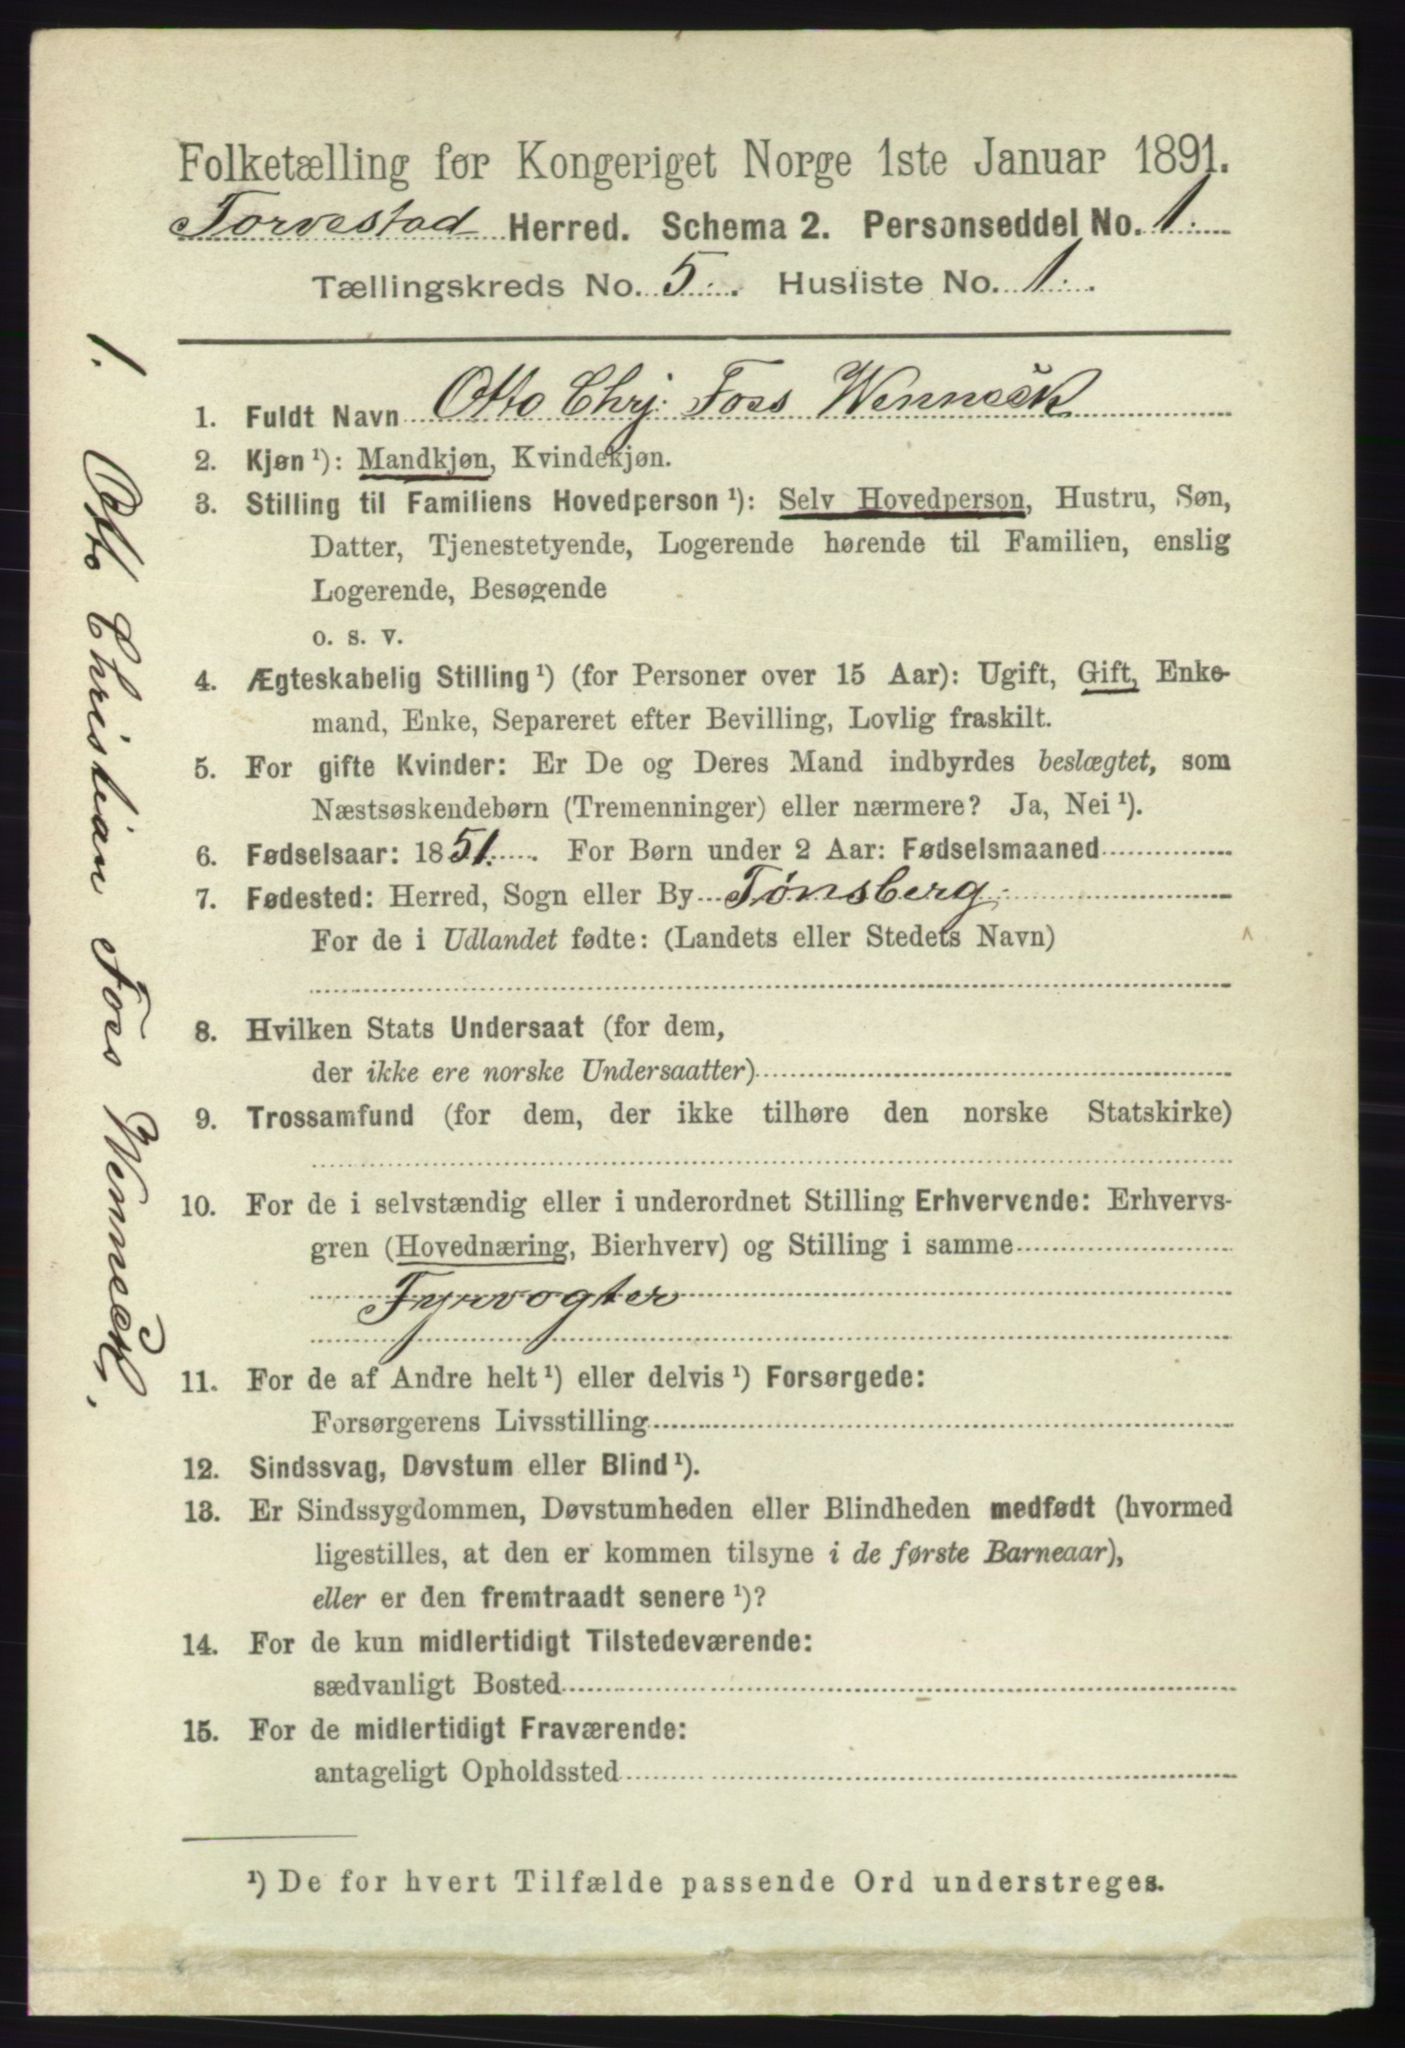 Folketælling før Kongeriget Norge 1ste Januar 1891.
Torvestad Herred. Schema 2. Personseddel No. 1.
Tællingskreds No. 5. Husliste No. 1.
1. Fuldt Navn Otto Chrj. Foss Wenneck
2. Kjøn ¹): Mandkjøn, Kvindekjøn.
3. Stilling til Familiens Hovedperson ¹): Selv Hovedperson, Hustru, Søn,
Datter, Tjenestetyende, Logerende hørende til Familien, enslig
Logerende, Besøgende
o. s. v.
4. Ægteskabelig Stilling ¹) (for Personer over 15 Aar): Ugift, Gift, Enke-
mand, Enke, Separeret efter Bevilling, Lovlig fraskilt.
5. For gifte Kvinder: Er De og Deres Mand indbyrdes beslægtet, som
Næstsøskendebørn (Tremenninger) eller nærmere? Ja, Nei ¹).
6. Fødselsaar: 1851. For Børn under 2 Aar: Fødselsmaaned
7. Fødested: Herred, Sogn eller By Tønsberg.
For de i Udlandet fødte: (Landets eller Stedets Navn)
8. Hvilken Stats Undersaat (for dem,
der ikke ere norske Undersaatter)
9. Trossamfund (for dem, der ikke tilhøre den norske Statskirke)
10. For de i selvstændig eller i underordnet Stilling Erhvervende: Erhvervs-
gren (Hovednæring, Bierhverv) og Stilling i samme
Fyrvogter
11. For de af Andre helt ¹) eller delvis ¹) Forsørgede:
Forsørgerens Livsstilling
12. Sindssvag, Døvstum eller Blind ¹).
13. Er Sindssygdommen, Døvstumheden eller Blindheden medfødt (hvormed
ligestilles, at den er kommen tilsyne i de første Barneaar),
eller er den fremtraadt senere ¹)?
14. For de kun midlertidigt Tilstedeværende:
sædvanligt Bosted
15. For de midlertidigt Fraværende:
antageligt Opholdssted
¹) De for hvert Tilfælde passende Ord understreges.
1. Otto Christian Foss Wenneck.